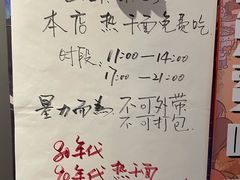 本店热干面免费吃
时段 11:00-14:00
17:00-21:00
量力而为 不可外带
不可打包
80年代
90年代 热干面